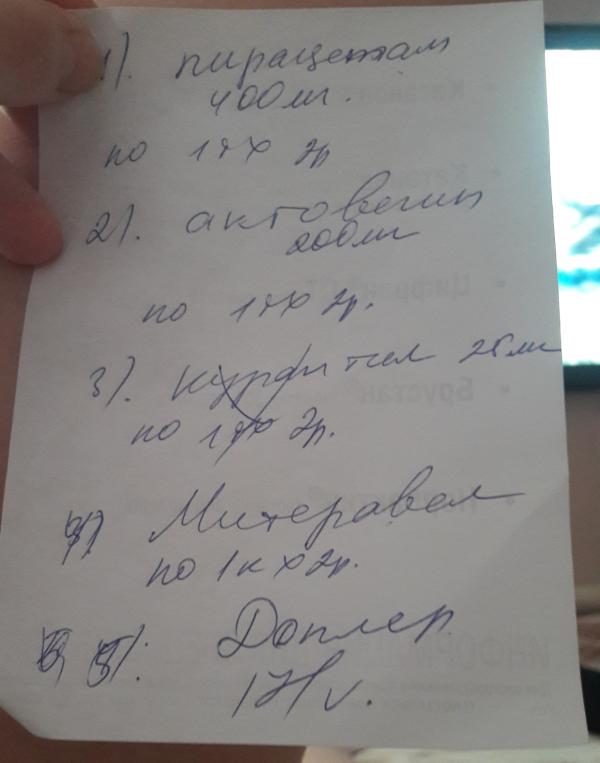 1). пирацетам
400мг.
по 1т х 2р
2). актовегин
200мг
по 1т х 2р.
3). 25мг
по 1т х 2р.
4) Митеравел
по 1к х 2р.
5). Доплер
Катавон
Цифран
Брустан